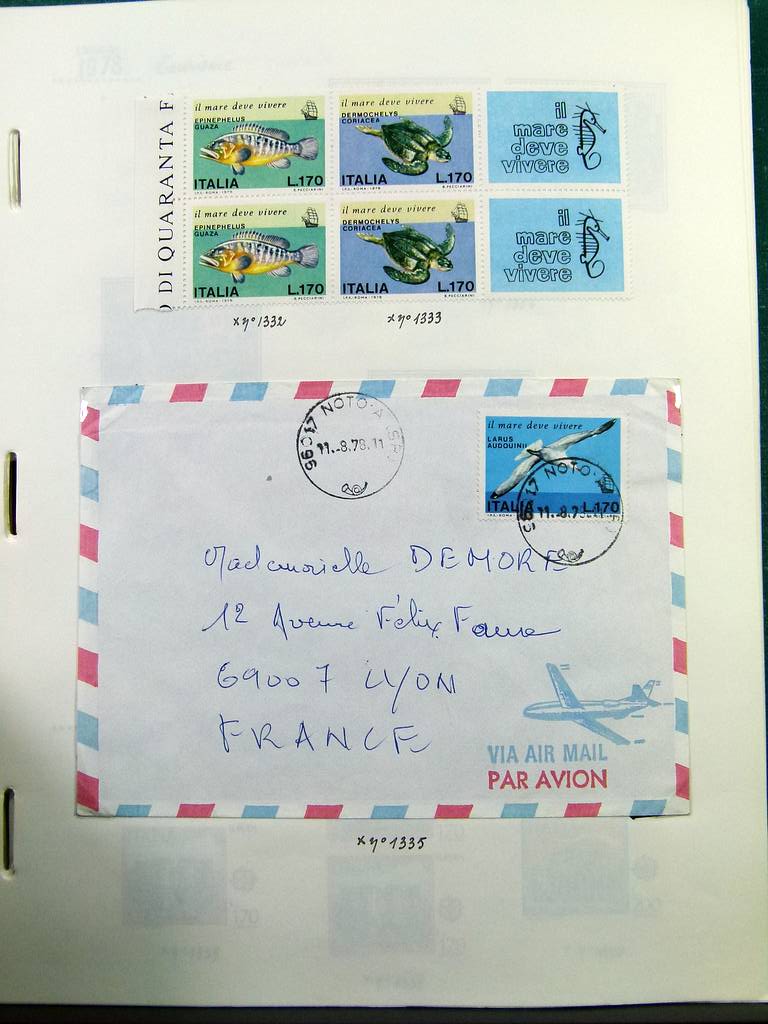 DI QUARANTA F
il mare deve vivere
EPINEPHELUS
GUAZA
ITALIA L.170
I.P.S.-ROMA-1978 E.PECCIARINI
il mare deve vivere
DERMOCHELYS
CORIACEA
ITALIA L.170
I.P.S.-ROMA-1978 E.PECCIARINI
il
mare
deve
vivere
il mare deve vivere
EPINEPHELUS
GUAZA
ITALIA L.170
I.P.S.-ROMA-1978 E.PECCIARINI
il mare deve vivere
DERMOCHELYS
CORIACEA
ITALIA L.170
I.P.S.-ROMA-1978 E.PECCIARINI
il
mare
deve
vivere
x n° 1332
x n° 1333
96017 NOTO-A
11.-8.78.11
il mare deve vivere
LARUS
AUDOUINII
ITALIA L.170
96017 NOTO
11.-8.78
Mademoiselle DEMORE
12 Avenue Félix Faure
69007 LYON
FRANCE
VIA AIR MAIL
PAR AVION
x n° 1335